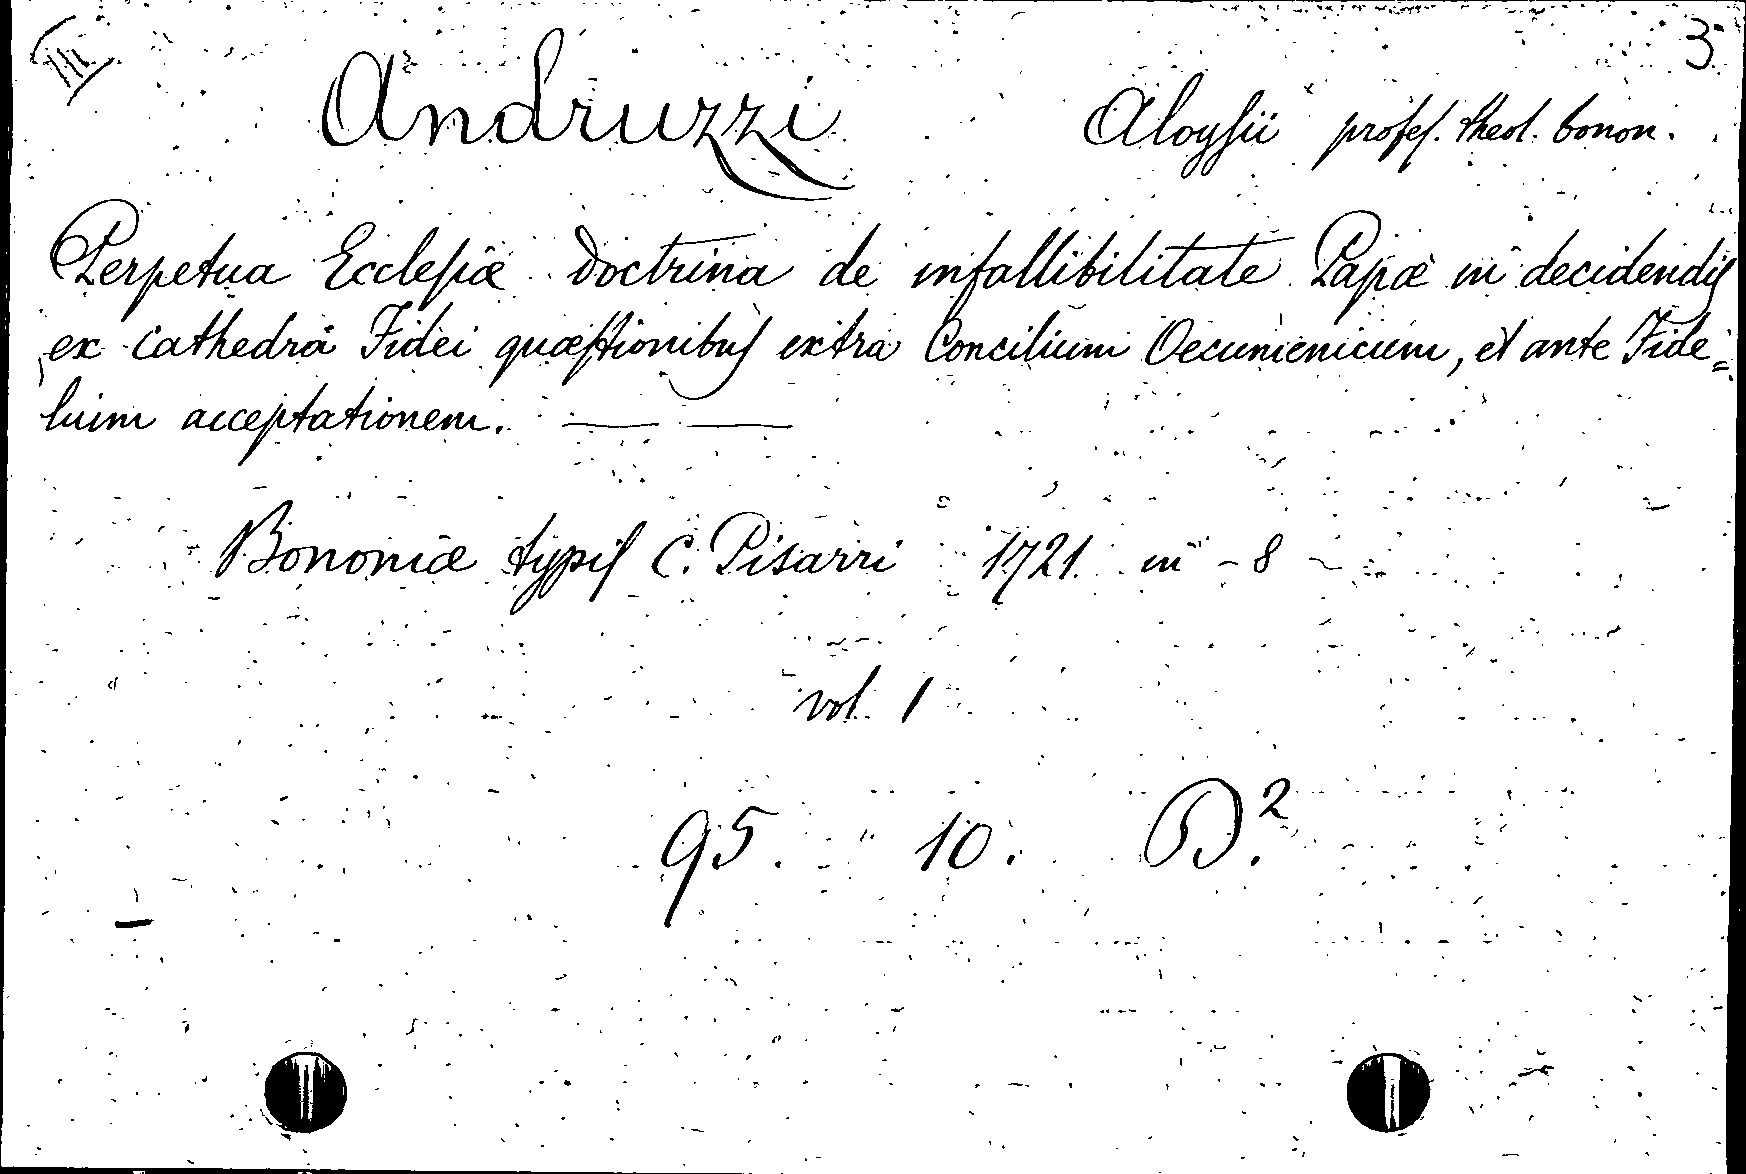 3
Andruzzi Aloysii profes. theol. bonon.
Perpetua Ecclesiæ doctrina de infallibilitate Papæ in decidendis
ex cathedra Fidei quæstionibus extra Concilium Oecumenicum, et ante Fide=
lium acceptationem. — —
Bononiæ typis C. Pisarri 1721. in - 8
vol. 1
95. 10.